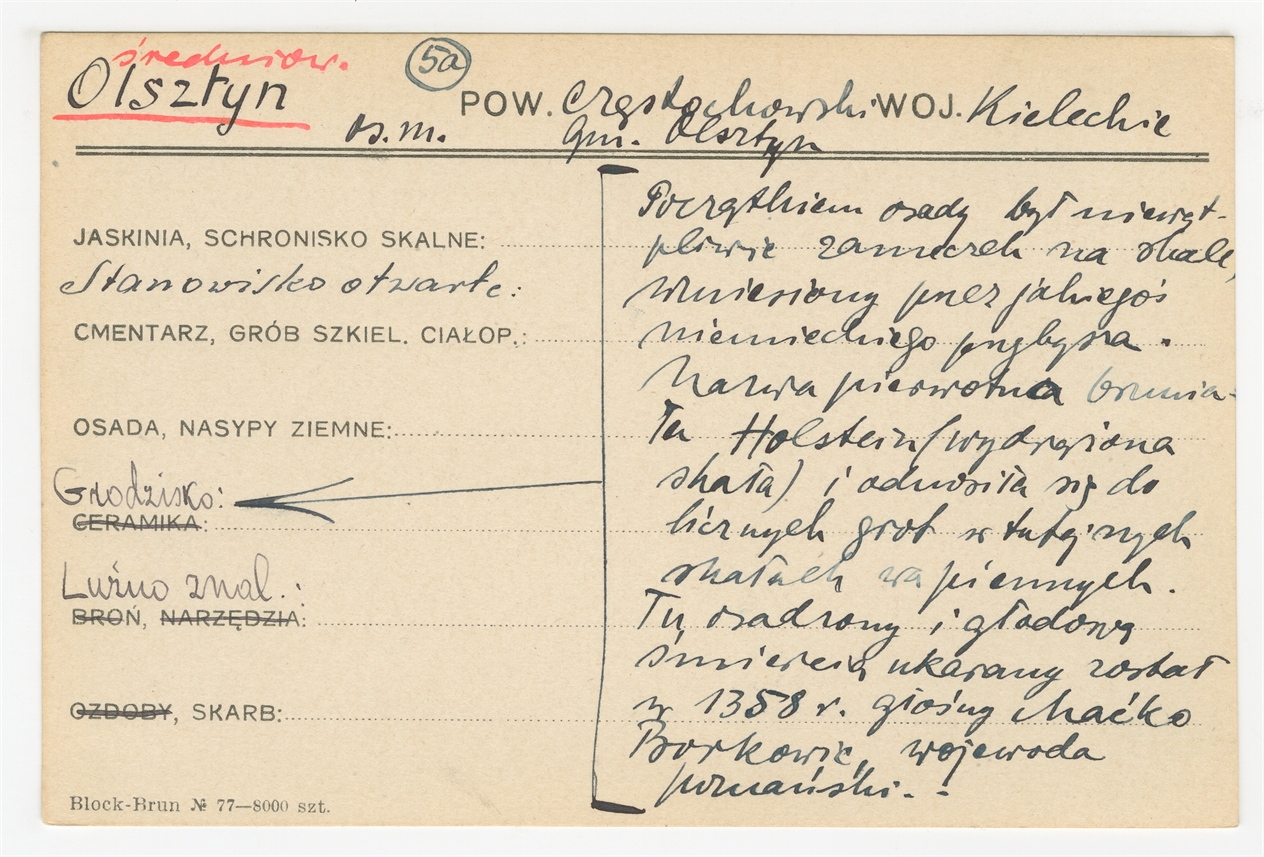 średniow.
Olsztyn
5a
POW. Częstochowski WOJ. Kieleckie
os. m. gm. Olsztyn
JASKINIA, SCHRONISKO SKALNE:
Stanowisko otwarte:
CMENTARZ, GRÓB SZKIEL. CIAŁOP.:
OSADA, NASYPY ZIEMNE:
Grodzisko:
CERAMIKA:
Luźno znal.:
BROŃ, NARZĘDZIA:
OZDOBY, SKARB:
Block-Brun № 77—8000 szt.
Początkiem osady był niewąt-
pliwie zameczek na skale,
wzniesiony przez jakiegoś
niemieckiego przybysza.
Nazwa pierwotna brzmia-
ła Holstein (wydrążona
skała) i odnosiła się do
licznych grot w tutejszych
skałach wapiennych.
Tu osadzony i głodową
śmiercią ukarany został
w 1358 r. głośny Maćko
Borkowic, wojewoda
poznański.